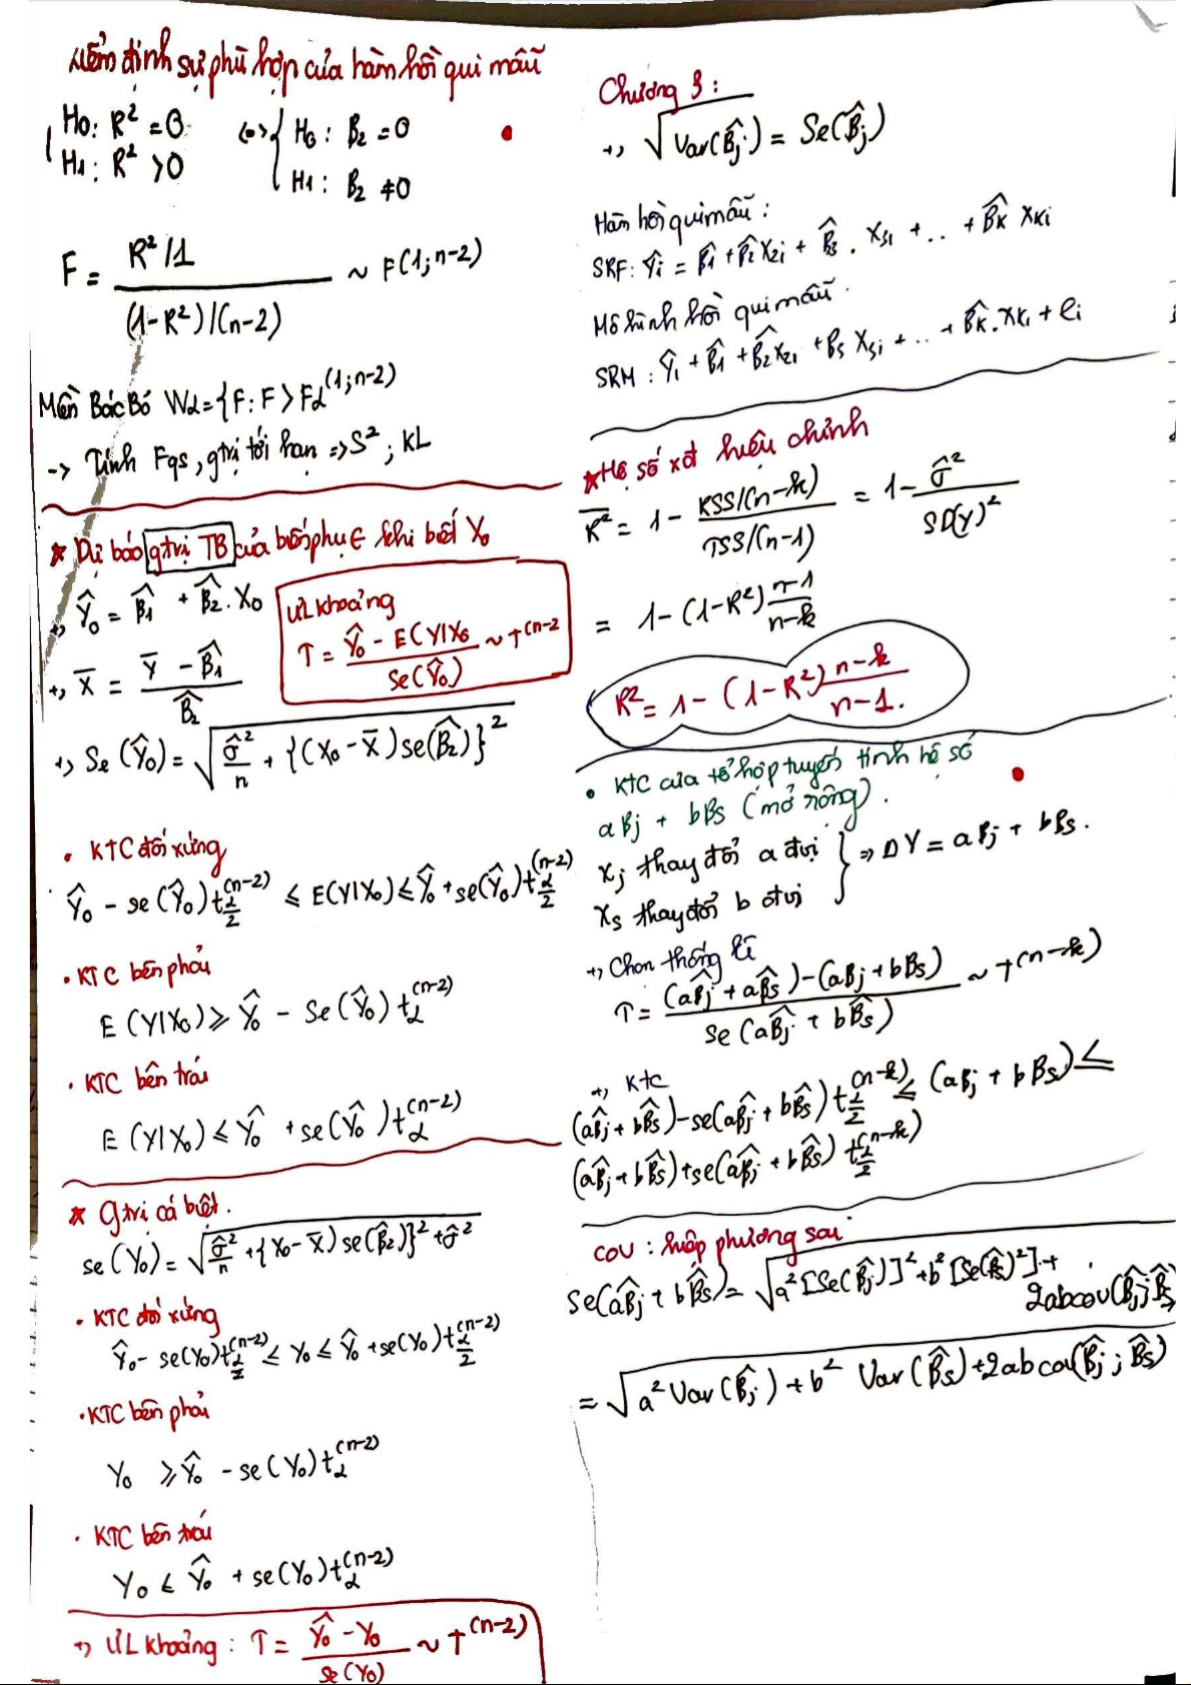 Kiểm định sự phù hợp của hàm hồi qui mẫu
H0: R² = 0 <=> { H0 : B2 = 0
H1 : R² > 0 H1 : B2 ≠ 0
F = (R²/1) / ((1-R²)/(n-2)) ~ F(1; n-2)
Miền Bác Bỏ Wα = {F : F > Fα^(1; n-2)
-> Tính Fqs, gtrị tới hạn => S² ; KL
* Dự báo gtrị TB của biến phụ ∈ khi biết X0
+, Ŷ0 = B̂1 + B̂2 . X0
ƯL khoảng
T = (Ŷ0 - E(Y/X0) / se(Ŷ0) ~ T^(n-2
+, X̄ = (Ȳ - B̂1) / B̂2
+, Se (Ŷ0) = √(σ̂²/n + {(X0 - X̄) se(B̂2)}²
• KTC đối xứng
Ŷ0 - se(Ŷ0) t_(α/2)^(n-2) ≤ E(Y/X0) ≤ Ŷ0 + se(Ŷ0) t_(α/2)^(n-2)
• KTC bên phải
E (Y/X0) ≥ Ŷ0 - Se(Ŷ0) tα^(n-2)
• KTC bên trái
E (Y/X0) ≤ Ŷ0 + se(Ŷ0) tα^(n-2)
* gtrị cá biệt.
se(Y0) = √(σ̂²/n + {X0 - X̄) se(B̂2)}² + σ̂²
• KTC đối xứng
Ŷ0 - se(Y0) t_(α/2)^(n-2) ≤ Y0 ≤ Ŷ0 + se(Y0) t_(α/2)^(n-2)
• KTC bên phải
Y0 ≥ Ŷ0 - se(Y0) tα^(n-2)
• KTC bên trái
Y0 ≤ Ŷ0 + se(Y0) tα^(n-2)
+, ƯL khoảng : T = (Ŷ0 - Y0) / se(Y0) ~ T^(n-2)
Chương 3 :
+, √Var(B̂j) = Se(B̂j)
Hàm hồi qui mẫu :
SRF: Ŷi = B̂1 + B̂2 X2i + B̂3 . X3i + .. + B̂K XKi
Mô hình hồi qui mẫu .
SRM : Ŷi + B̂1 + B̂2 X2i + B3 X3i + .. + B̂K . XKi + ei
* Hệ số xđ hiệu chỉnh
R̄² = 1 - (RSS/(n-k)) / (TSS/(n-1)) = 1 - σ̂² / SD(Y)²
= 1 - (1-R²) (n-1)/(n-k)
R² = 1 - (1-R̄²) (n-k)/(n-1).
• KTC của tổ hợp tuyến tính hệ số
aBj + bBs (mở rộng).
Xj thay đổi a đvị } => ΔY = aBj + bBs.
Xs thay đổi b đvị
+, Chọn thống kê
T = ((aB̂j + aB̂s) - (aBj + bBs)) / Se (aB̂j + bB̂s) ~ T^(n-k)
+, Ktc
(aB̂j + bB̂s) - se(aB̂j + bB̂s) t_(α/2)^(n-k) ≤ (aBj + bBs) ≤
(aB̂j + bB̂s) + se(aB̂j + bB̂s) t_(α/2)^(n-k)
COV : hiệp phương sai
Se(aB̂j + bB̂s) = √a² [Se(B̂j)]² + b² [Se(B̂s)²] +
2abcov(B̂j; B̂s)
= √a² Var(B̂j) + b² Var(B̂s) + 2abcov(B̂j ; B̂s)